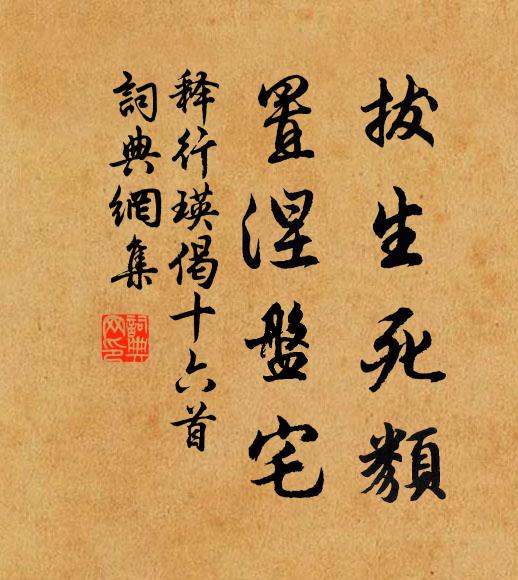 拔生死類
置涅盤宅
释行瑛偈十六首
詞典網集
詞典
网印